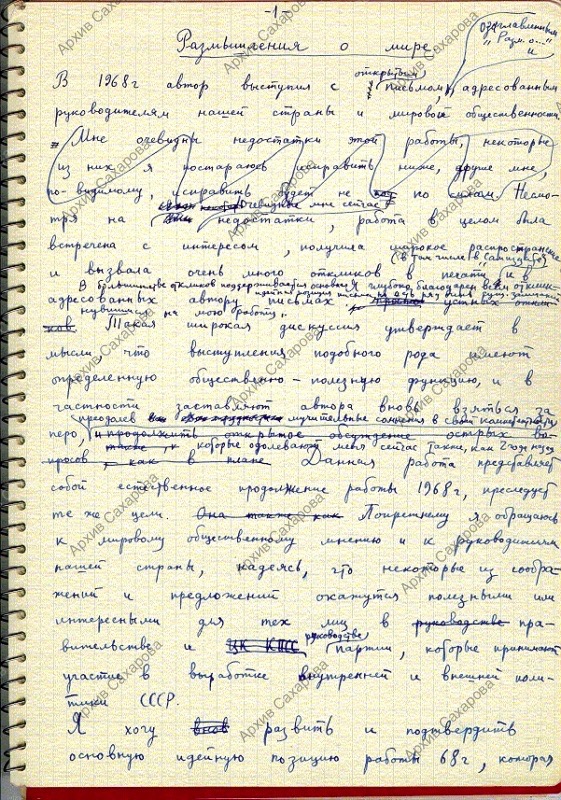 -1-
Размышления о мире
озаглавленным
"Разм. о..."
и
открытым
В 1968г автор выступил с письмом, адресованным
руководителям нашей страны и мировой общественности
Мне очевидны недостатки этой работы, некоторые
из них я постараюсь исправить ниже, другие мне,
по-видимому, исправить будет не по силам. Несмо-
очевидные мне сейчас
тря на недостатки, работа в целом была
встречена с интересом, получила широкое распространение
(в том числе в Самиздате)
и вызвала очень много откликов в печати и в
В большинстве откликов поддерживается основная
глубоко благодарен всем отклик-
адресованных автору письмах
нувшимся на мою работу.
Такая широкая дискуссия утверждает в
мысли, что выступления подобного рода имеют
определенную общественно-полезную функцию, и в
частности заставляют автора вновь взяться за
преодолев мучительные сомнения в своей компетентности
перо, и продолжить открытое обсуждение острых во-
которые одолевают меня сейчас также, как 2 года назад
просов, как в плане Данная работа представляет
собой естественное продолжение работы 1968г, преследует
те же цели. Она также как Попрежнему я обращаюсь
к мировому общественному мнению и к руководителям
нашей страны, надеясь, что некоторые из сообра-
жений и предложений окажутся полезными или
интересными для тех лиц в руководстве пра-
руководстве
вительстве и ЦК КПСС партии, которые принимают
участие в выработке внутренней и внешней поли-
тики СССР.
Я хочу внов развить и подтвердить
основную идейную позицию работы 68г, которая
Архив Сахарова